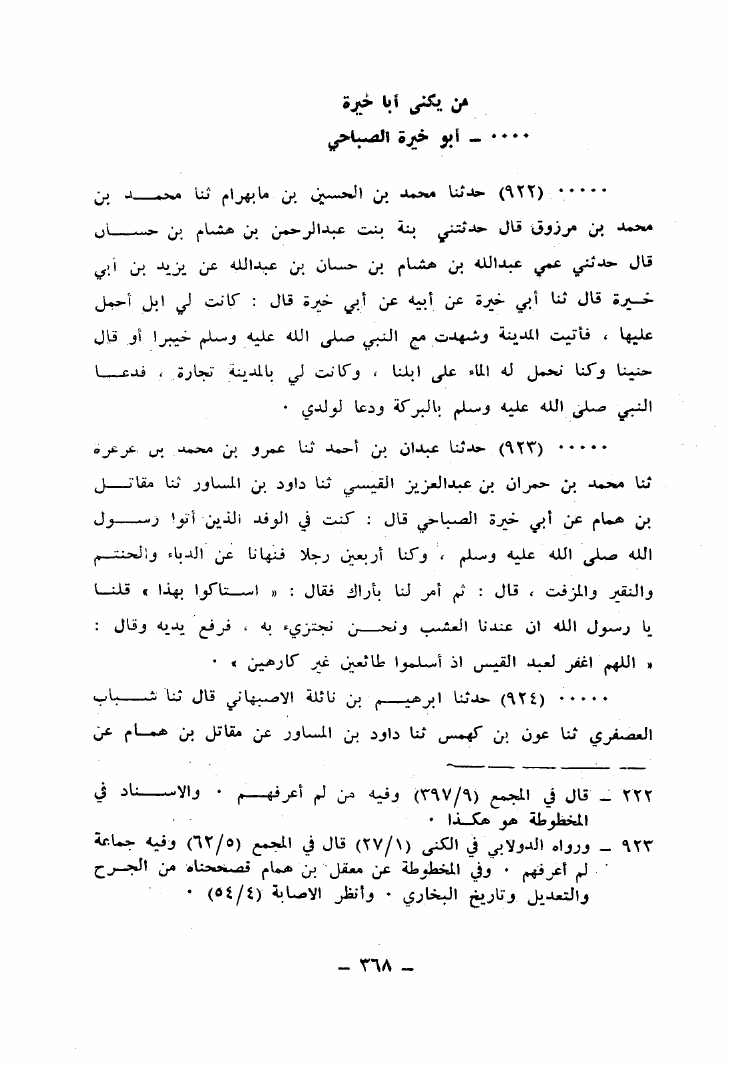 من يكنى أبا خيرة
٠٠٠٠ ـ أبو خيرة الصباحي
٠٠٠٠٠ (٩٢٢) حدثنا محمد بن الحسين بن مابهرام ثنا محمـــد بن
محمد بن مرزوق قال حدثتني بنة بنت عبدالرحمن بن هشام بن حســـان
قال حدثني عمي عبدالله بن هشام بن حسان بن عبدالله عن يزيد بن أبي
خـيرة قال ثنا أبي خيرة عن أبيه عن أبي خيرة قال : كانت لي ابل أحمل
عليها ، فأتيت المدينة وشهدت مع النبي صلى الله عليه وسلم خيبرا أو قال
حنينا وكنا نحمل له الماء على ابلنا ، وكانت لي بالمدينة تجارة ، فدعـــا
النبي صلى الله عليه وسلم بالبركة ودعا لولدي ٠
٠٠٠٠٠ (٩٢٣) حدثنا عبدان بن أحمد ثنا عمرو بن محمد بن عرعرة
ثنا محمد بن حمران بن عبدالعزيز القيسي ثنا داود بن المساور ثنا مقاتـــل
بن همام عن أبي خيرة الصباحي قال : كنت في الوفد الذين أتوا رســـول
الله صلى الله عليه وسلم ، وكنا أربعين رجلا فنهانا عن الدباء والحنتـــم
والنقير والمزفت ، قال : ثم أمر لنا بأراك فقال : « اســـتاكوا بهذا » قلنـــا
يا رسول الله ان عندنا العشب ونحـــن نجتزيء به ، فرفع يديه وقال :
« اللهم اغفر لعبد القيس اذ أسلموا طائعين غير كارهين » ٠
٠٠٠٠٠ (٩٢٤) حدثنا ابرهيـــم بن نائلة الاصبهاني قال ثنا شـــباب
العصفري ثنا عون بن كهمس ثنا داود بن المساور عن مقاتل بن همـــام عن
٢٢٢ ـ قال في المجمع (٣٩٧/٩) وفيه من لم أعرفهـــم ٠ والاســـناد في
المخطوطة هو هكـذا ٠
٩٢٣ ـ ورواه الدولابي في الكنى (٢٧/١) قال في المجمع (٦٢/٥) وفيه جماعة
لم أعرفهم ٠ وفي المخطوطة عن معقل بن همام فصححناه من الجـــرح
والتعديل وتاريخ البخاري ٠ وأنظر الاصابة (٥٤/٤) ٠
ـ ٣٦٨ ـ